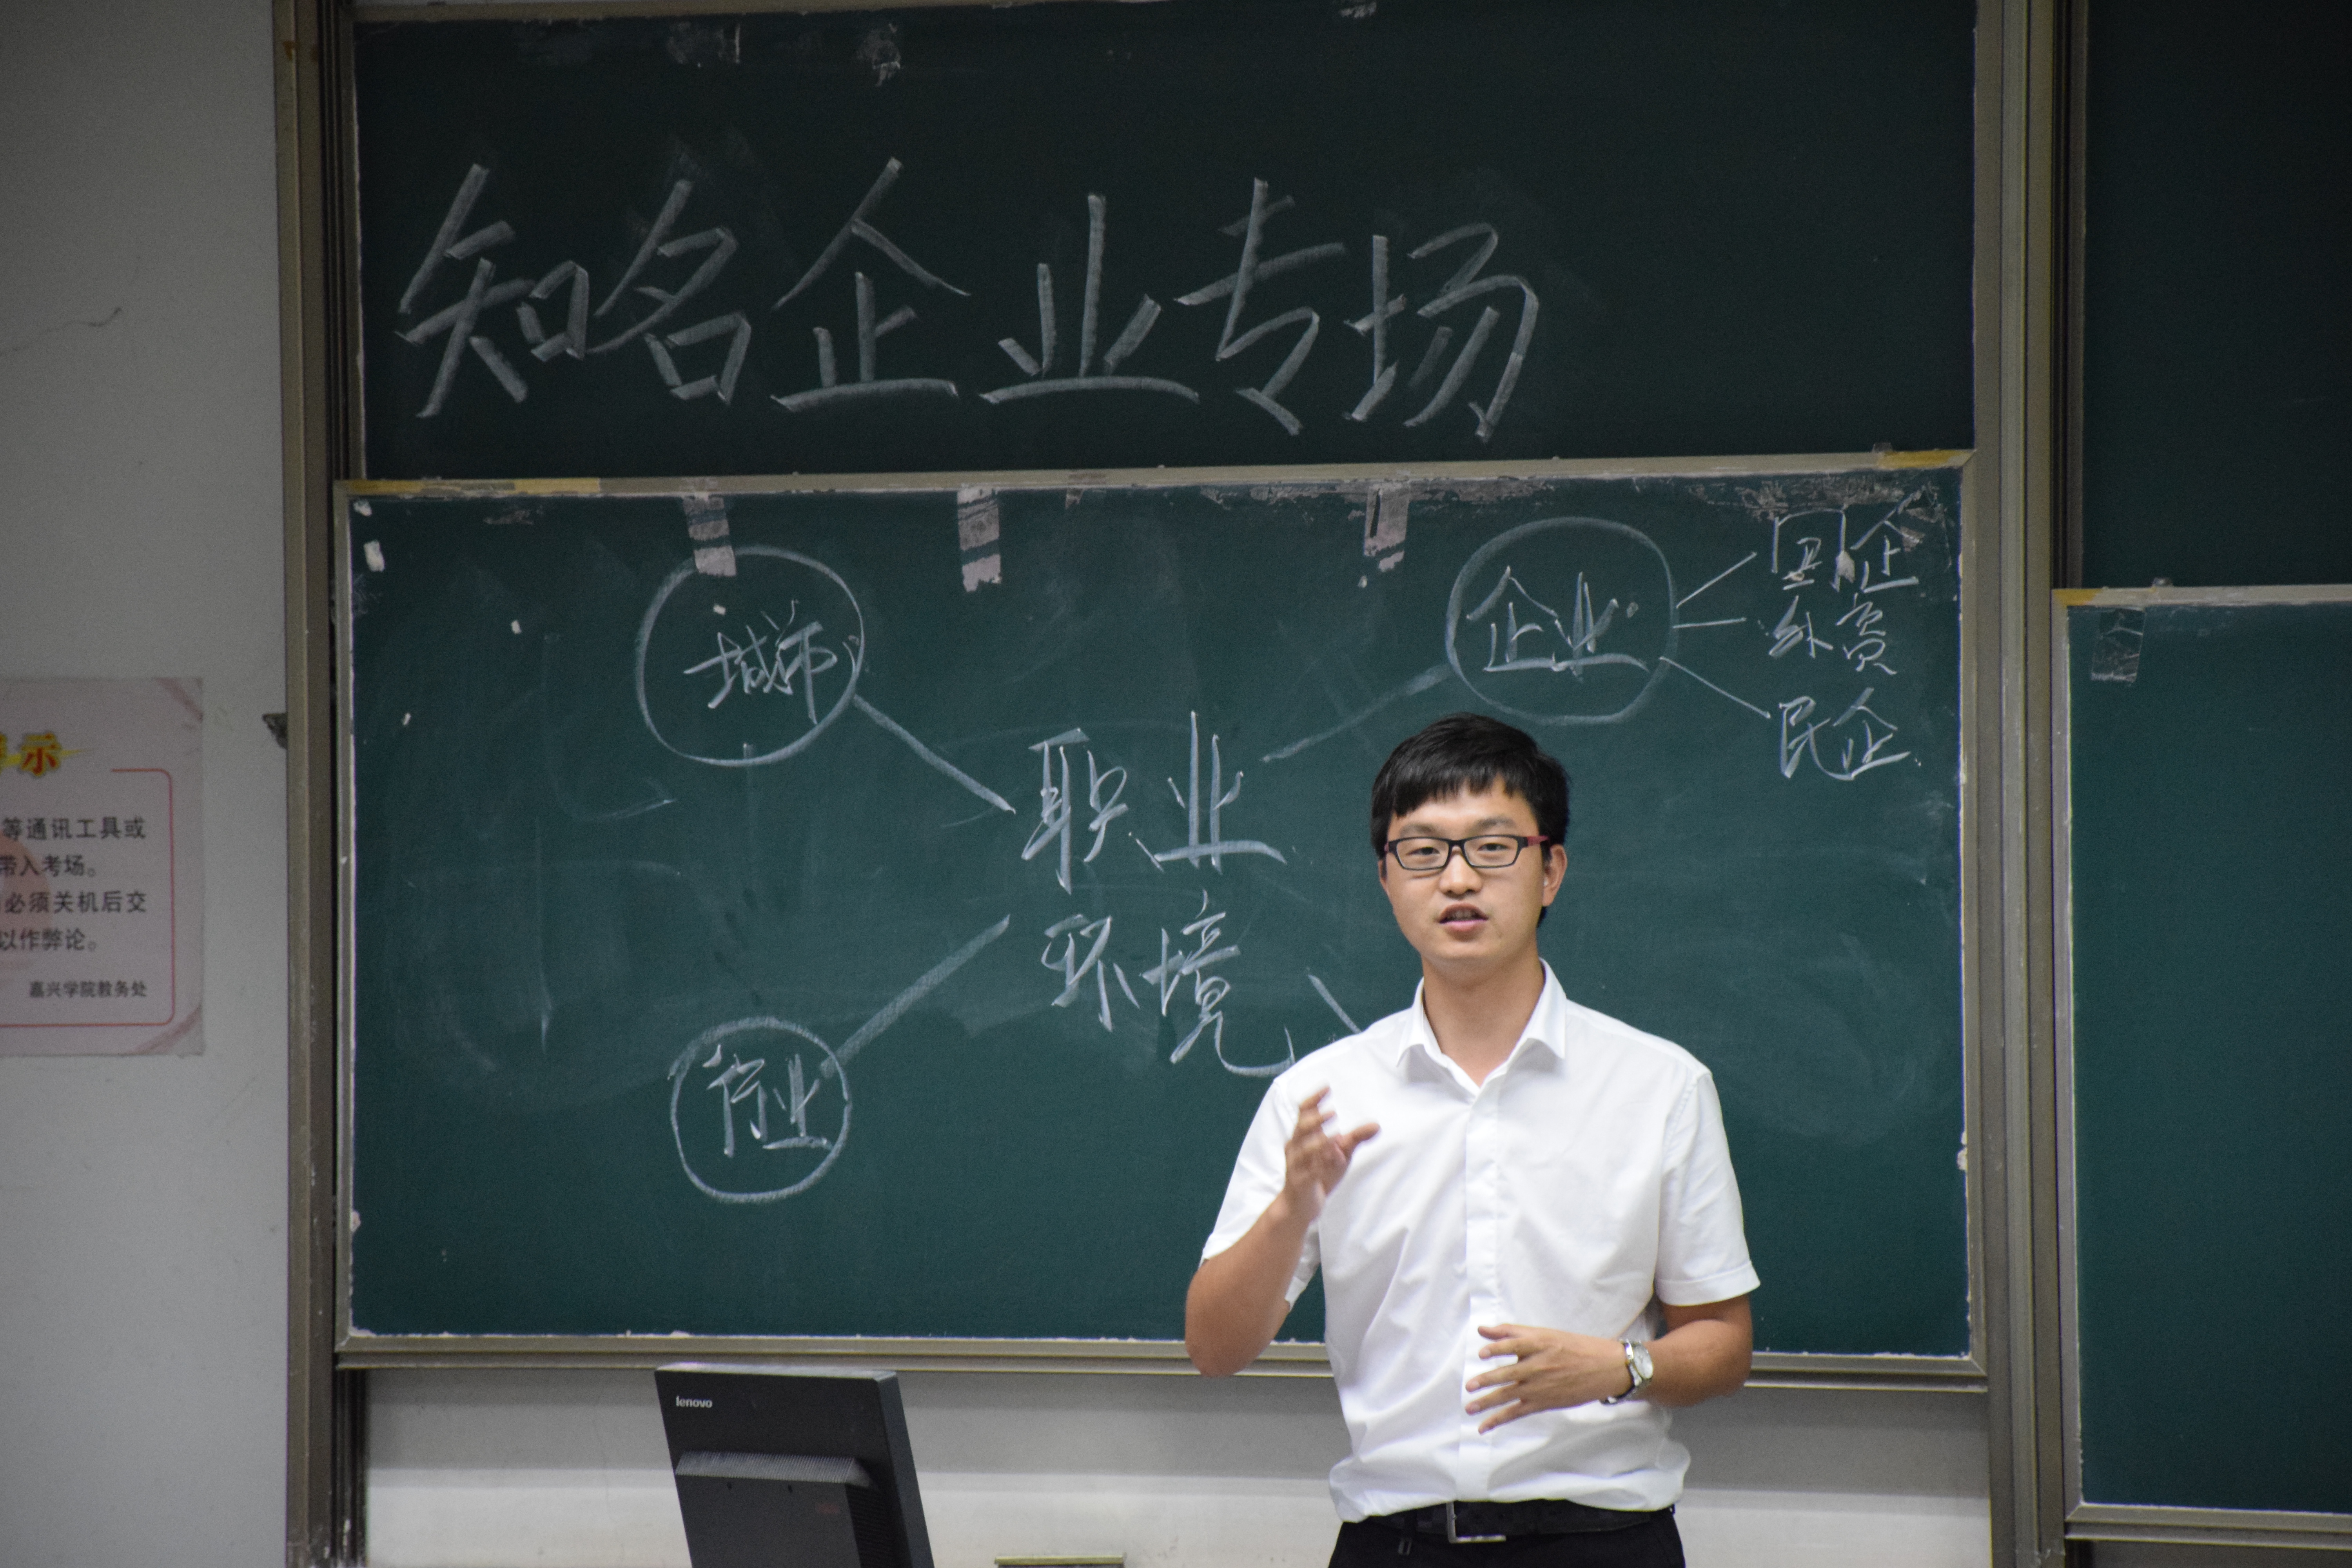 知名企业专场
城市
企业
国企
外资
民企
职业
环境
行业
示
等通讯工具或
带入考场。
必须关机后交
以作弊论。
嘉兴学院教务处
lenovo